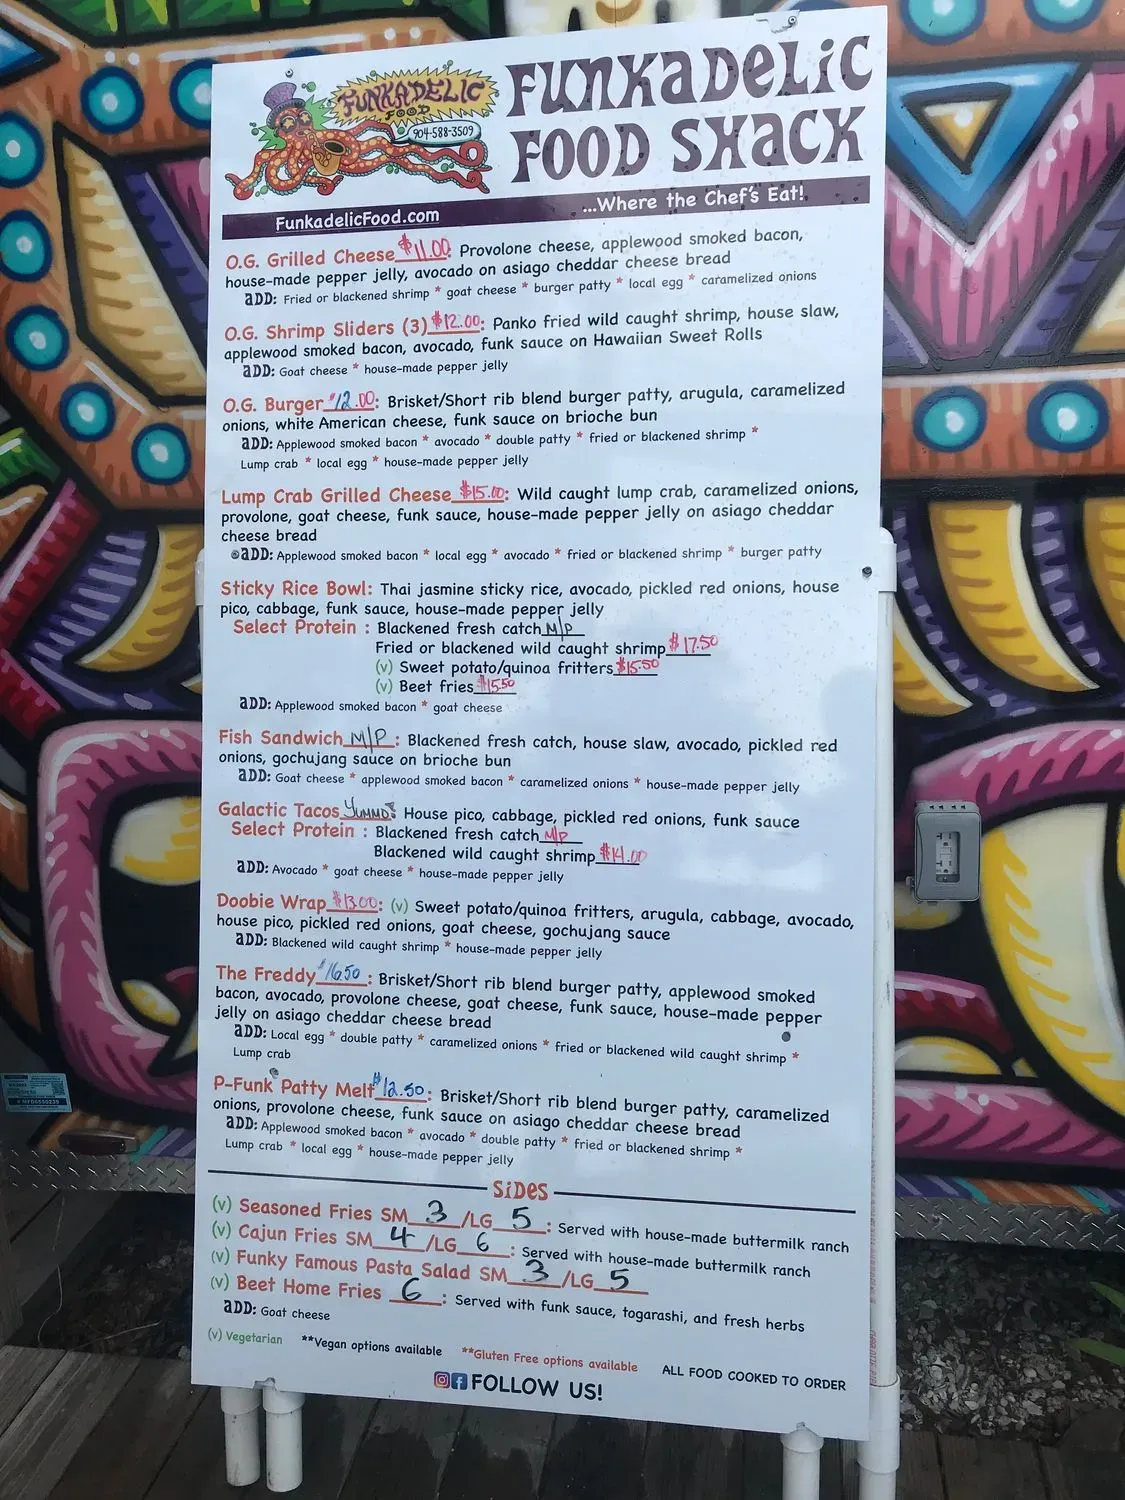 FUNKADELIC
FOOD
904-588-3509
FUNKADELIC
FOOD SHACK
FunkadelicFood.com
...Where the Chef's Eat!
O.G. Grilled Cheese $11.00: Provolone cheese, applewood smoked bacon,
house-made pepper jelly, avocado on asiago cheddar cheese bread
ADD: Fried or blackened shrimp * goat cheese * burger patty * local egg * caramelized onions
O.G. Shrimp Sliders (3) $12.00: Panko fried wild caught shrimp, house slaw,
applewood smoked bacon, avocado, funk sauce on Hawaiian Sweet Rolls
ADD: Goat cheese * house-made pepper jelly
O.G. Burger $12.00: Brisket/Short rib blend burger patty, arugula, caramelized
onions, white American cheese, funk sauce on brioche bun
ADD: Applewood smoked bacon * avocado * double patty * fried or blackened shrimp *
Lump crab * local egg * house-made pepper jelly
Lump Crab Grilled Cheese $15.00: Wild caught lump crab, caramelized onions,
provolone, goat cheese, funk sauce, house-made pepper jelly on asiago cheddar
cheese bread
ADD: Applewood smoked bacon * local egg * avocado * fried or blackened shrimp * burger patty
Sticky Rice Bowl: Thai jasmine sticky rice, avocado, pickled red onions, house
pico, cabbage, funk sauce, house-made pepper jelly
Select Protein : Blackened fresh catch M/P
Fried or blackened wild caught shrimp $17.50
(v) Sweet potato/quinoa fritters $15.50
(v) Beet fries $15.50
ADD: Applewood smoked bacon * goat cheese
Fish Sandwich M/P: Blackened fresh catch, house slaw, avocado, pickled red
onions, gochujang sauce on brioche bun
ADD: Goat cheese * applewood smoked bacon * caramelized onions * house-made pepper jelly
Galactic Tacos YUMMO!: House pico, cabbage, pickled red onions, funk sauce
Select Protein : Blackened fresh catch M/P
Blackened wild caught shrimp $14.00
ADD: Avocado * goat cheese * house-made pepper jelly
Doobie Wrap $13.00: (v) Sweet potato/quinoa fritters, arugula, cabbage, avocado,
house pico, pickled red onions, goat cheese, gochujang sauce
ADD: Blackened wild caught shrimp * house-made pepper jelly
The Freddy $16.50: Brisket/Short rib blend burger patty, applewood smoked
bacon, avocado, provolone cheese, goat cheese, funk sauce, house-made pepper
jelly on asiago cheddar cheese bread
ADD: Local egg * double patty * caramelized onions * fried or blackened wild caught shrimp *
Lump crab
P-Funk Patty Melt $12.50: Brisket/Short rib blend burger patty, caramelized
onions, provolone cheese, funk sauce on asiago cheddar cheese bread
ADD: Applewood smoked bacon * avocado * double patty * fried or blackened shrimp *
Lump crab * local egg * house-made pepper jelly
SIDES
(v) Seasoned Fries SM 3 /LG 5 : Served with house-made buttermilk ranch
(v) Cajun Fries SM 4 /LG 6 : Served with house-made buttermilk ranch
(v) Funky Famous Pasta Salad SM 3 /LG 5
(v) Beet Home Fries 6 : Served with funk sauce, togarashi, and fresh herbs
ADD: Goat cheese
(v) Vegetarian **Vegan options available **Gluten Free options available ALL FOOD COOKED TO ORDER
FOLLOW US!